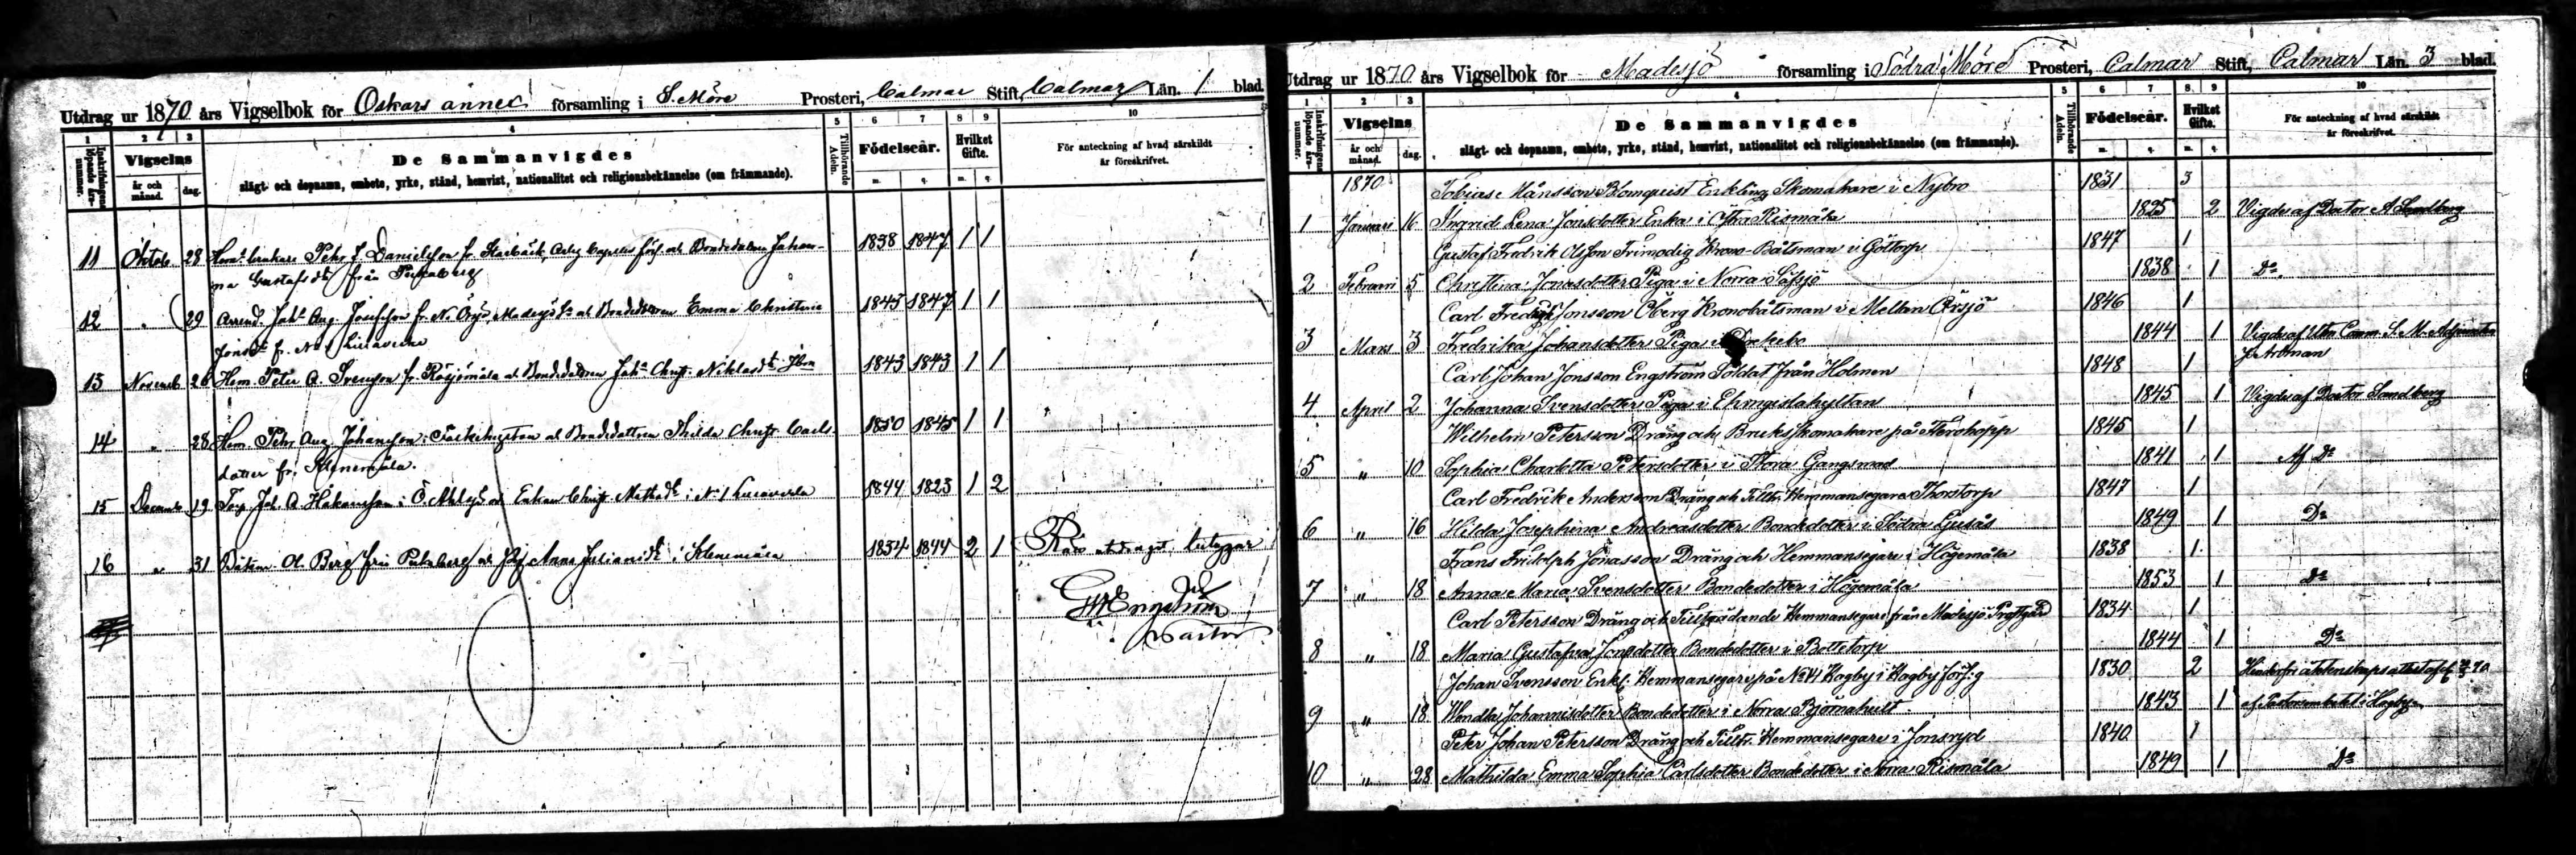 Utdrag ur 1870 års Vigselbok för Oskars annex församling i S. Möre Prosteri, Calmar Stift, Calmar Län. 1 blad.
1 2 3 4 5 6 7 8 9 10
Inskrifningens löpande års-nummer. Vigselns De Sammanvigdes Tillhörande Adeln. Födelseår. Hvilket Gifte. För anteckning af hvad särskildt är föreskrifvet.
år och månad. dag. slägt- och dopnamn, embete, yrke, stånd, hemvist, nationalitet och religionsbekännelse (om främmande). m. q. m. q.
11 Octob 28 Pehr J Danielsson fr. och Bondedottren Johan- 1838 1847 1 1
na Gustafsdr från
12 " 29 Arrend. Joh. Aug. Josefsson fr. N. Madesjö och Bondedottren Emma Christina 1843 1847 1 1
Jonsdr fr. No 1
13 Novemb 26 Hem. Peter A. Svensson fr. och Bondedottren Joh. Christ. Niklasdr 1843 1843 1 1
14 " 28 Hem. Pehr Aug. Johansson i och Bondedottren Thilda Christ. Carls- 1850 1845 1 1
dotter fr. Klenemåla.
15 Decemb 19 Joh. A. Håkansson i och Enkan Christ. i No 1 1844 1823 1 2
16 " 31 Båtsm. Ol. Berg från och Anna Juliana i Klenemåla 1834 1844 2 1 Rätt utdraget, betygar
Pastor
Utdrag ur 1870 års Vigselbok för Madesjö församling i Södra Möre Prosteri, Calmar Stift, Calmar Län. 3 blad.
1 2 3 4 5 6 7 8 9 10
Inskrifningens löpande års-nummer. Vigselns De Sammanvigdes Tillhörande Adeln. Födelseår. Hvilket Gifte. För anteckning af hvad särskildt är föreskrifvet.
år och månad. dag. slägt- och dopnamn, embete, yrke, stånd, hemvist, nationalitet och religionsbekännelse (om främmande). m. q. m. q.
1870 Tobias Månsson Blomqvist Enkling Skomakare i Nybro 1831 3
1 Januari 16 Ingrid Lena Jonsdotter Enka i Östra Rismåla 1825 2 Vigde af Pastor A Sandberg
Gustaf Fredrik Olsson Frimodig Krono-Båtsman i Göttorp 1847 1
2 Februari 5 Christina Jonasdotter Piga i Norra Säfsjö 1838 1 Do
Carl Fredrik Jonsson Öberg Kronobåtsman i Mellan Örsjö 1846 1
3 Mars 3 Fredrika Johansdotter Piga i 1844 1 Vigde af
Carl Johan Jonsson Engström Soldat från Holmen 1848 1
4 April 2 Johanna Svensdotter Piga i Ehrngislahyltan 1845 1 Vigde af Pastor Sandberg
Wilhelm Petersson Dräng och Bruks Skomakare på Flerohopp 1845 1
5 " 10 Sophia Charlotta Petersdotter i Stora Gangsmad 1841 1 Af Do
Carl Fredrik Andersson Dräng och Tilltr. Hemmansegare Thorstorp 1847 1
6 " 16 Hilda Josephina Andreasdotter Bondedotter i Södra Ljusås 1849 1 Do
Frans Fridolph Jonasson Dräng och Hemmansegare i Högemåla 1838 1
7 " 18 Anna Maria Svensdotter Bondedotter i Högemåla 1853 1 Do
Carl Petersson Dräng och Tillträdande Hemmansegare från Madesjö Prestgård 1834 1
8 " 18 Maria Gustafva Jonsdotter Bondedotter i Bottetorp 1844 1 Do
Johan Svensson Enkl. Hemmansegare på No 14 Hagby i Hagby förs:g 1830 2
9 " 18 Wendla Johannisdotter Bondedotter i Norra Bjornahult 1843 1 af Pastorsembetet i Hagby
Peter Johan Petersson Dräng och Tilltr. Hemmansegare i Jonsryd 1840 1
10 " 28 Mathilda Emma Sophia Carlsdotter Bondedotter i Norra Rismåla 1849 1 Do